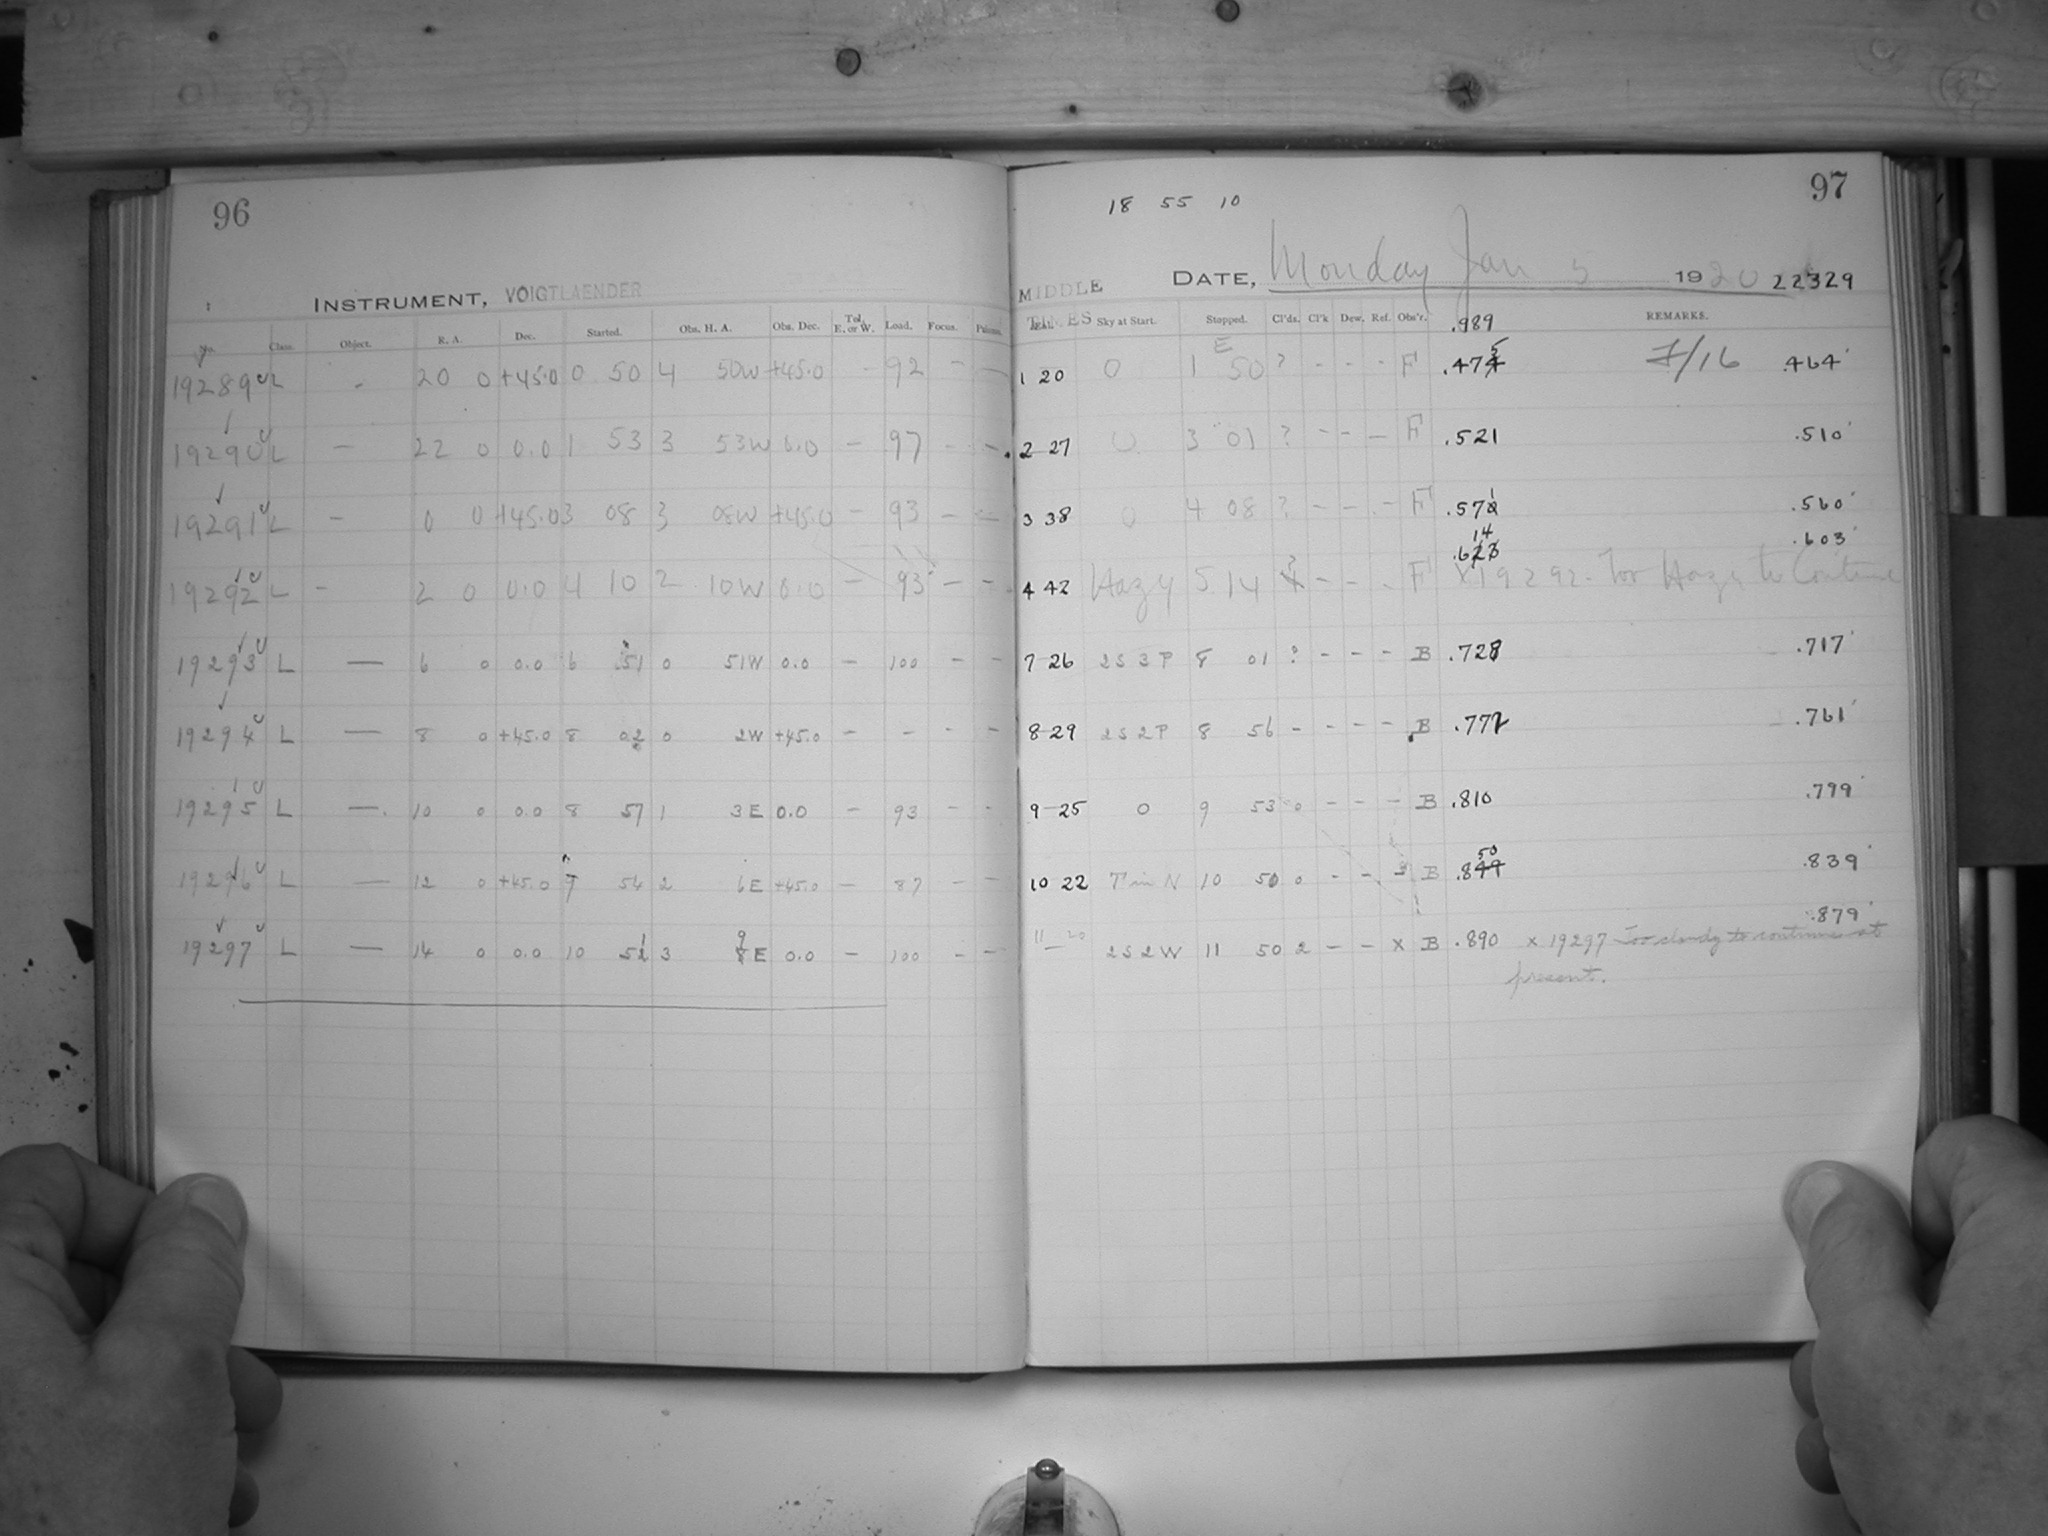 96
INSTRUMENT, VOIGTLAENDER
No. Class. Object. R. A. Dec. Started. Obs. H. A. Obs. Dec. Tel. E. or W. Load. Focus.
19289 L - 20 0 +45.0 0 50 4 50W +45.0 - 92 - -
19290 L - 22 0 0.0 1 53 3 53W 0.0 - 97 - -
19291 L - 0 0 +45.0 3 08 3 08W +45.0 - 93 - -
19292 L - 2 0 0.0 4 10 2 10W 0.0 - 93 - -
19293 L - 6 0 0.0 6 51 0 51W 0.0 - 100 - -
19294 L - 8 0 +45.0 8 02 0 2W +45.0 - - - -
19295 L - 10 0 0.0 8 57 1 3E 0.0 - 93 - -
19296 L - 12 0 +45.0 9 54 2 6E +45.0 - 87 - -
19297 L - 14 0 0.0 10 51 3 9E 0.0 - 100 - -
97
18 55 10
MIDDLE DATE, Monday Jan 5 1920 22329
TIMES Sky at Start. Stopped. Cl'ds. Cl'k Dew. Ref. Obs'r. .989 REMARKS.
1 20 0 1 50 ? - - - F .475 F/16 .464
2 27 0 3 01 ? - - - F .521 .510
3 38 0 4 08 ? - - - F .571 .560
4 42 Hazy 5 14 ? - - - F .614 .603
x 19292. Too Hazy to Continue
7 26 2S 3P 8 01 ? - - - B .728 .717
8 29 2S 2P 8 56 - - - - B .772 .761
9 25 0 9 53 0 - - - B .810 .799
10 22 T in N 10 50 0 - - - B .850 .839
11 20 2S 2W 11 50 2 - - x B .890 .879
x 19297 Too cloudy to continue at
present.